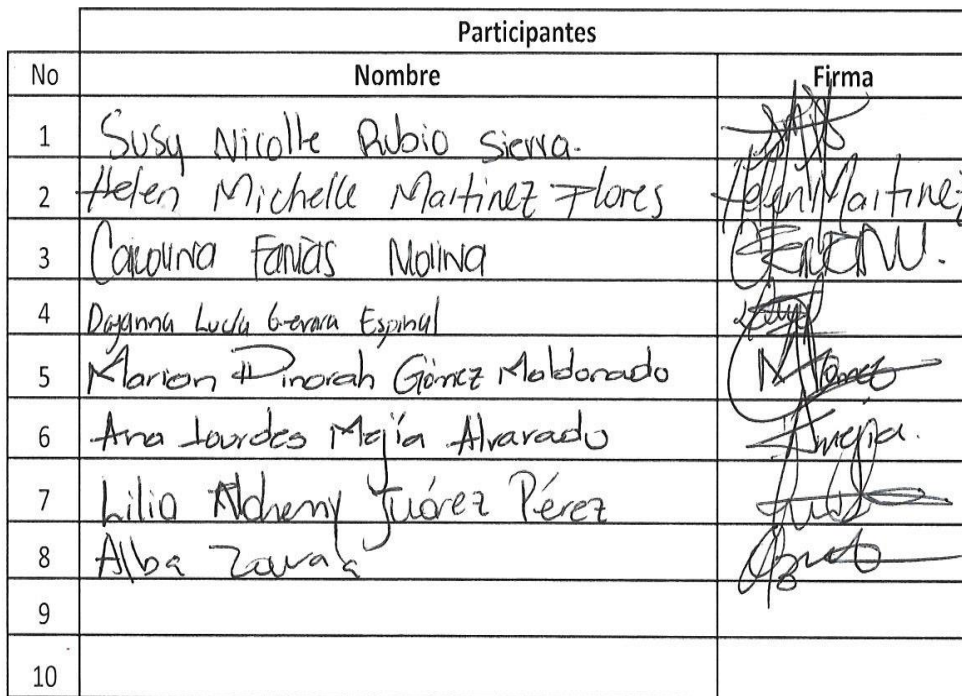 Participantes
No Nombre Firma
1 Susy Nicolle Rubio Sierra.
2 Helen Michelle Martinez Flores Helen Martinez
3 Carolina Farias Molina
4 Dayanna Lucía Guevara Espinal
5 Marion Dinorah Gómez Maldonado
6 Ana Lourdes Mejía Alvarado AMejia.
7 Lilia Juárez Pérez
8 Alba Zavala
9
10